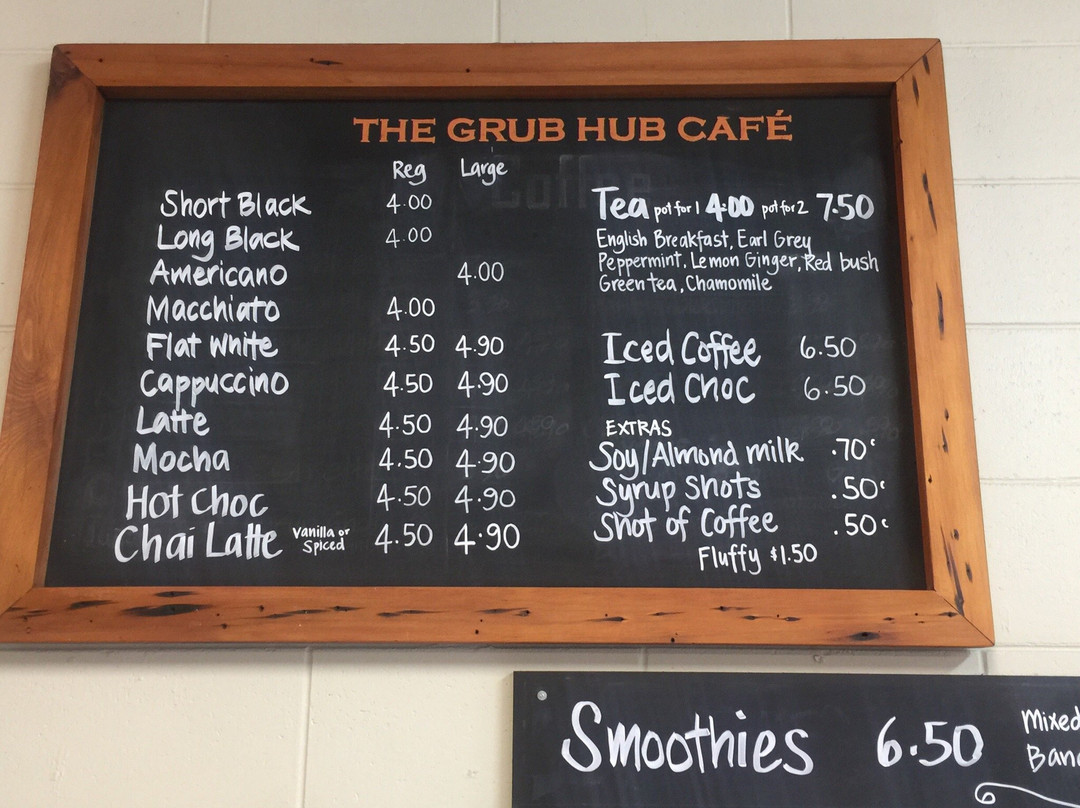 THE GRUB HUB CAFÉ
Coffee
Reg Large
Short Black 4.00
Long Black 4.00
Americano 4.00
Macchiato 4.00
Flat White 4.50 4.90
Cappuccino 4.50 4.90
Latte 4.50 4.90
Mocha 4.50 4.90
Hot Choc 4.50 4.90
Chai Latte Vanilla or Spiced 4.50 4.90
Tea pot for 1 4.00 pot for 2 7.50
English Breakfast, Earl Grey
Peppermint, Lemon Ginger, Red bush
Green tea, Chamomile
Iced Coffee 6.50
Iced Choc 6.50
EXTRAS
Soy/Almond milk .70c
Syrup Shots .50c
Shot of Coffee .50c
Fluffy $1.50
Smoothies 6.50
Mixed